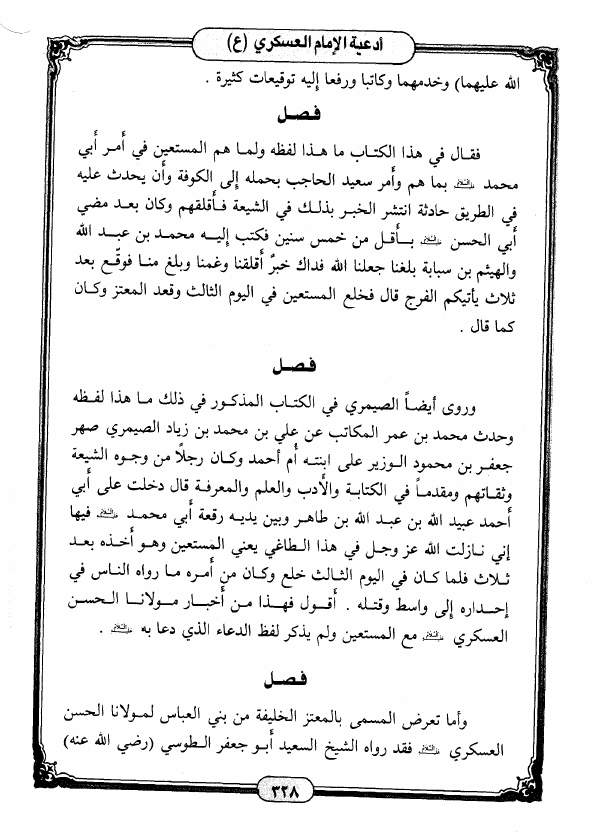 أدعية الإمام العسكري (ع)
الله عليهما) وخدمهما وكاتبا ورفعا إليه توقيعات كثيرة .
فصل
فقال في هذا الكتاب ما هذا لفظه ولما هم المستعين في أمر أبي
محمد بما هم وأمر سعيد الحاجب بحمله إلى الكوفة وأن يحدث عليه
في الطريق حادثة انتشر الخبر بذلك في الشيعة فأقلقهم وكان بعد مضي
أبي الحسن بأقل من خمس سنين فكتب إليه محمد بن عبد الله
والهيثم بن سبابة بلغنا جعلنا الله فداك خبرٌ أقلقنا وغمنا وبلغ منا فوقّع بعد
ثلاث يأتيكم الفرج قال فخلع المستعين في اليوم الثالث وقعد المعتز وكان
كما قال .
فصل
وروى أيضاً الصيمري في الكتاب المذكور في ذلك ما هذا لفظه
وحدث محمد بن عمر المكاتب عن علي بن محمد بن زياد الصيمري صهر
جعفر بن محمود الوزير على ابنته أم أحمد وكان رجلاً من وجوه الشيعة
وثقاتهم ومقدماً في الكتابة والأدب والعلم والمعرفة قال دخلت على أبي
أحمد عبيد الله بن عبد الله بن طاهر وبين يديه رقعة أبي محمد فيها
إني نازلت الله عز وجل في هذا الطاغي يعني المستعين وهو أخذه بعد
ثلاث فلما كان في اليوم الثالث خلع وكان من أمره ما رواه الناس في
إحداره إلى واسط وقتله . أقول فهذا من أخبار مولانا الحسن
العسكري مع المستعين ولم يذكر لفظ الدعاء الذي دعا به .
فصل
وأما تعرض المسمى بالمعتز الخليفة من بني العباس لمولانا الحسن
العسكري فقد رواه الشيخ السعيد أبو جعفر الطوسي (رضي الله عنه)
٣٢٨